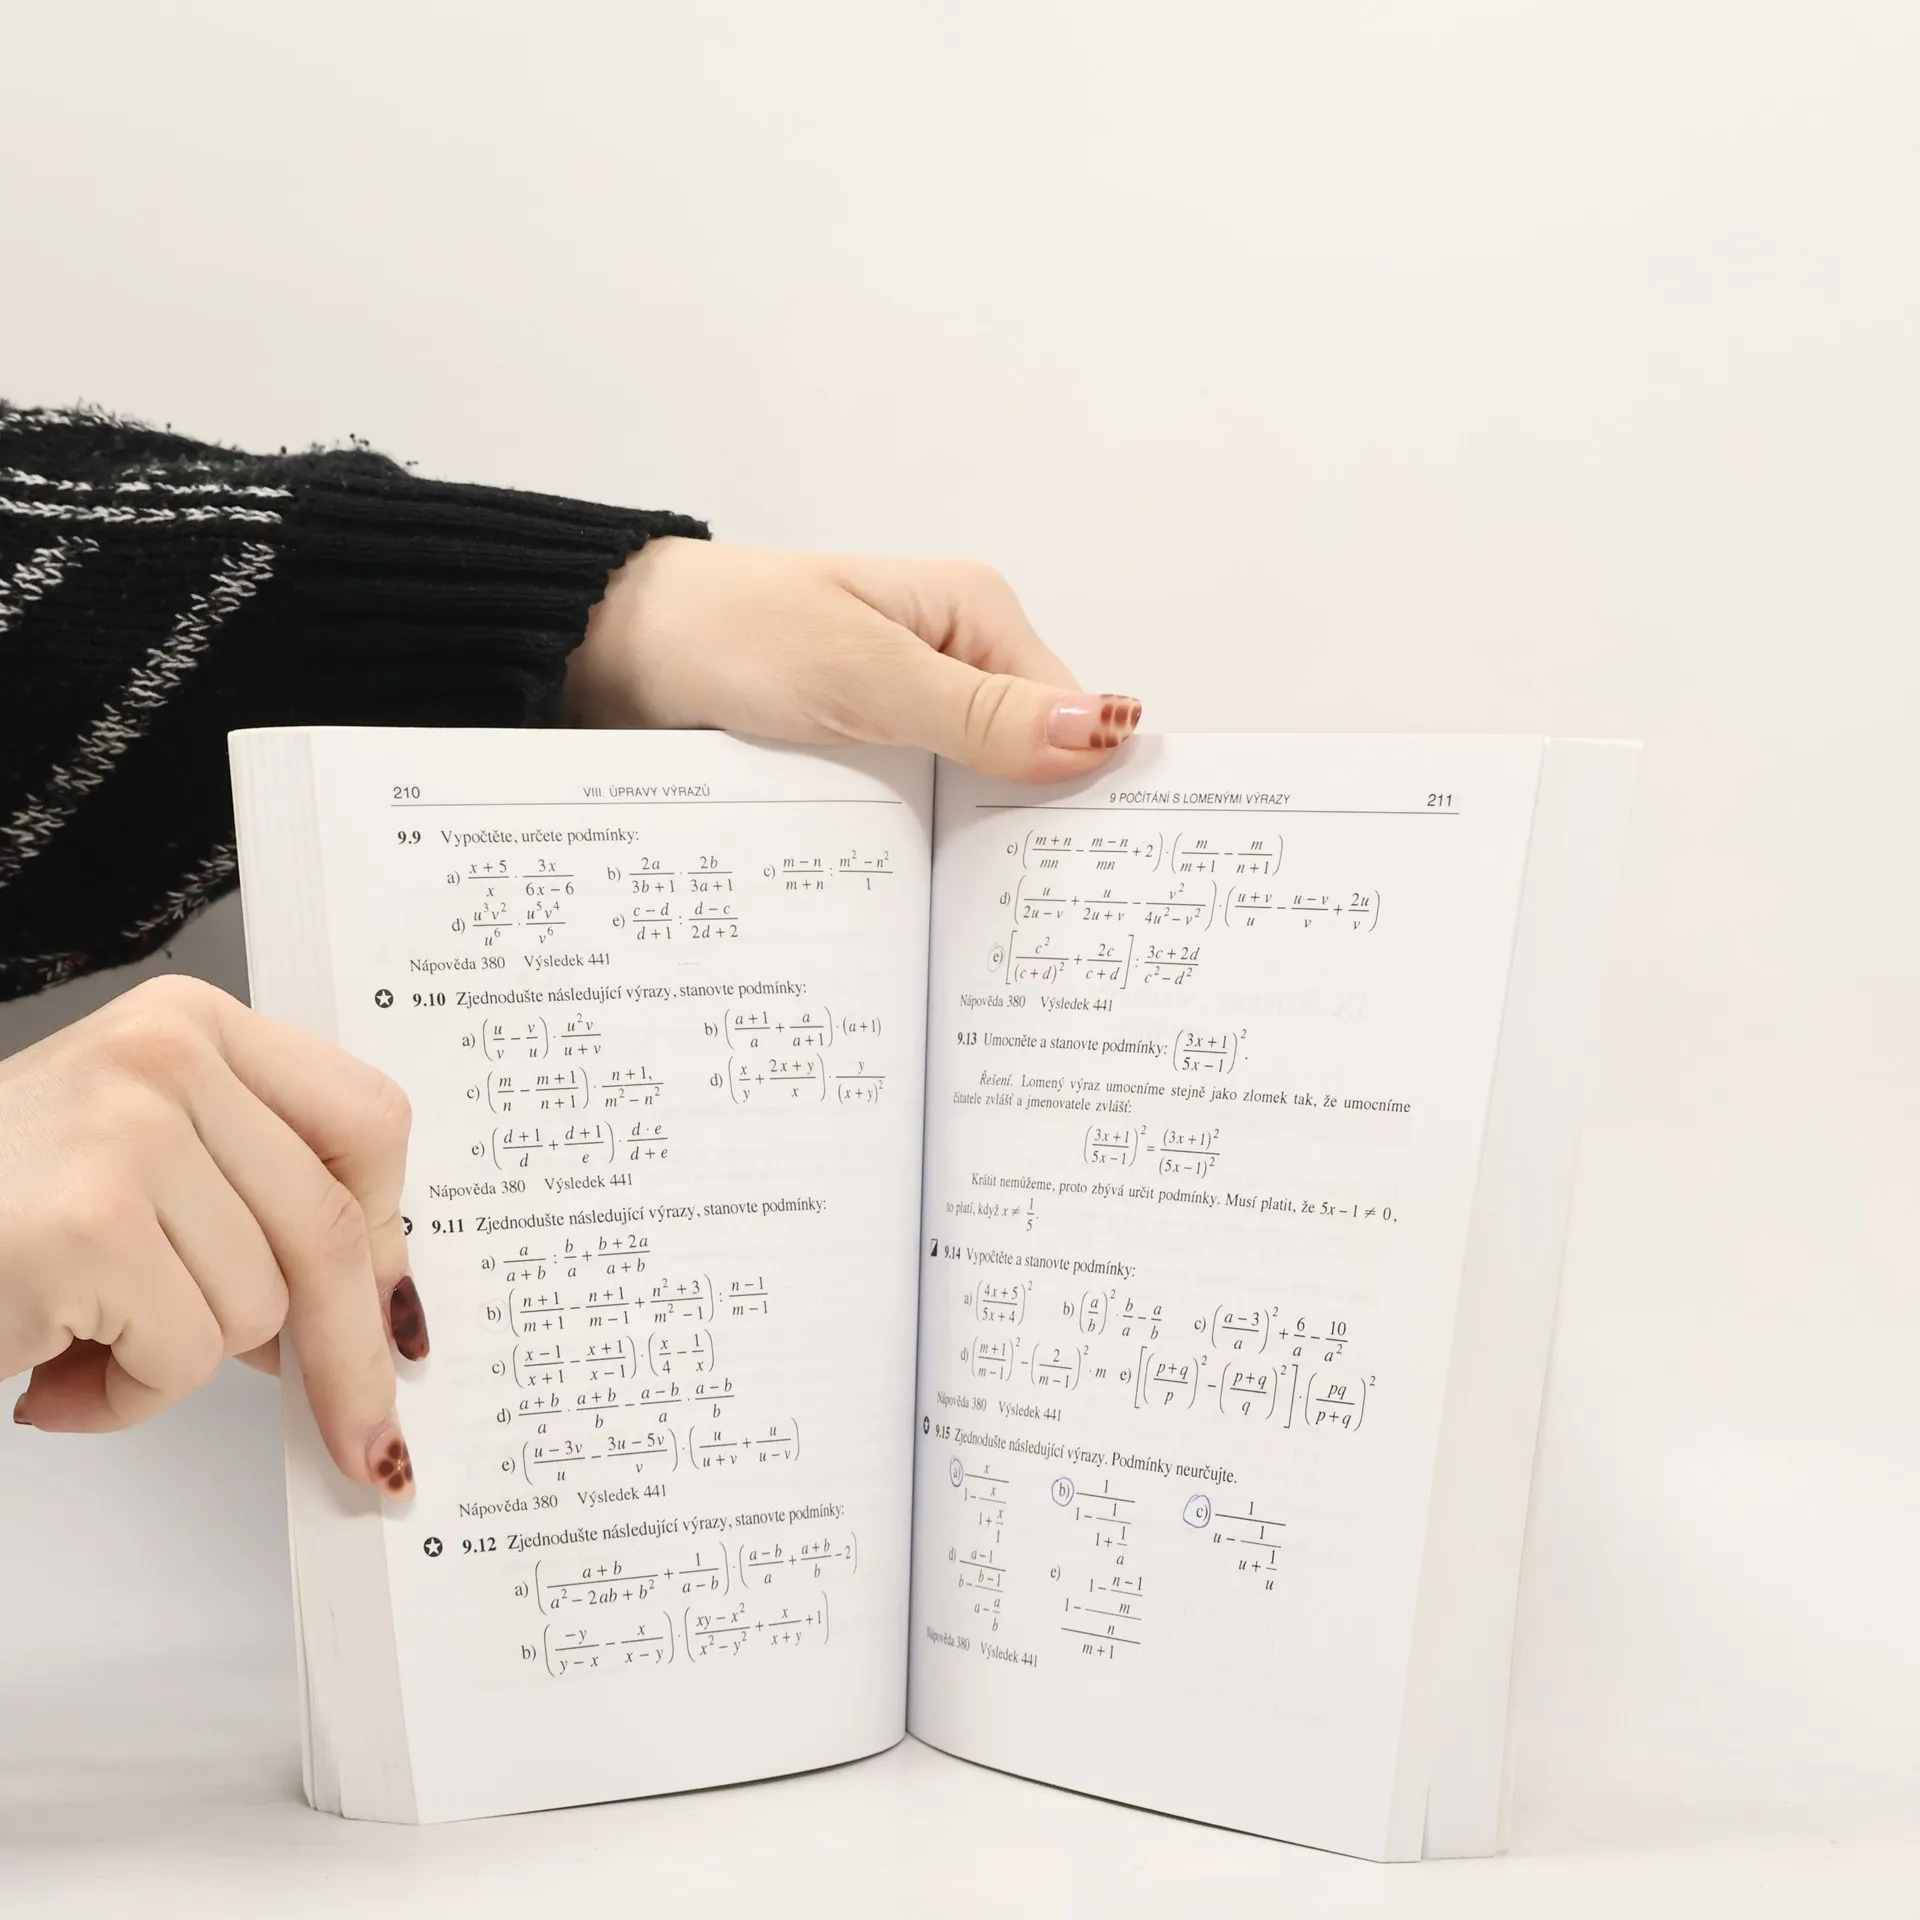 210 VIII. ÚPRAVY VÝRAZŮ
9.9 Vypočtěte, určete podmínky:
a) \frac{x+5}{x} · \frac{3x}{6x-6} b) \frac{2a}{3b+1} · \frac{2b}{3a+1} c) \frac{m-n}{m+n} : \frac{m^2-n^2}{1}
d) \frac{u^3v^2}{u^6} · \frac{u^5v^4}{v^6} e) \frac{c-d}{d+1} : \frac{d-c}{2d+2}
Nápověda 380 Výsledek 441
9.10 Zjednodušte následující výrazy, stanovte podmínky:
a) (\frac{u}{v} - \frac{v}{u}) · \frac{u^2v}{u+v} b) (\frac{a+1}{a} + \frac{a}{a+1}) · (a+1)
c) (\frac{m}{n} - \frac{m+1}{n+1}) · \frac{n+1,}{m^2-n^2} d) (\frac{x}{y} + \frac{2x+y}{x}) · \frac{y}{(x+y)^2}
e) (\frac{d+1}{d} + \frac{d+1}{e}) · \frac{d·e}{d+e}
Nápověda 380 Výsledek 441
9.11 Zjednodušte následující výrazy, stanovte podmínky:
a) \frac{a}{a+b} : \frac{b}{a} + \frac{b+2a}{a+b}
b) (\frac{n+1}{m+1} - \frac{n+1}{m-1} + \frac{n^2+3}{m^2-1}) : \frac{n-1}{m-1}
c) (\frac{x-1}{x+1} - \frac{x+1}{x-1}) · (\frac{x}{4} - \frac{1}{x})
d) \frac{a+b}{a} · \frac{a+b}{b} - \frac{a-b}{a} · \frac{a-b}{b}
e) (\frac{u-3v}{u} - \frac{3u-5v}{v}) · (\frac{u}{u+v} + \frac{u}{u-v})
Nápověda 380 Výsledek 441
9.12 Zjednodušte následující výrazy, stanovte podmínky:
a) (\frac{a+b}{a^2-2ab+b^2} + \frac{1}{a-b}) · (\frac{a-b}{a} + \frac{a+b}{b} - 2)
b) (\frac{-y}{y-x} - \frac{x}{x-y}) · (\frac{xy-x^2}{x^2-y^2} + \frac{x}{x+y} + 1)
9 POČÍTÁNÍ S LOMENÝMI VÝRAZY 211
c) (\frac{m+n}{mn} - \frac{m-n}{mn} + 2) · (\frac{m}{m+1} - \frac{m}{n+1})
d) (\frac{u}{2u-v} + \frac{u}{2u+v} - \frac{v^2}{4u^2-v^2}) · (\frac{u+v}{u} - \frac{u-v}{v} + \frac{2u}{v})
e) [\frac{c^2}{(c+d)^2} + \frac{2c}{c+d}] : \frac{3c+2d}{c^2-d^2}
Nápověda 380 Výsledek 441
9.13 Umocněte a stanovte podmínky: (\frac{3x+1}{5x-1})^2.
Řešení. Lomený výraz umocníme stejně jako zlomek tak, že umocníme
čitatele zvlášť a jmenovatele zvlášť:
(\frac{3x+1}{5x-1})^2 = \frac{(3x+1)^2}{(5x-1)^2}
Krátit nemůžeme, proto zbývá určit podmínky. Musí platit, že 5x - 1 ≠ 0,
to platí, když x ≠ \frac{1}{5}.
9.14 Vypočtěte a stanovte podmínky:
a) (\frac{4x+5}{5x+4})^2 b) (\frac{a}{b})^2 · \frac{b}{a} - \frac{a}{b} c) (\frac{a-3}{a})^2 + \frac{6}{a} - \frac{10}{a^2}
d) (\frac{m+1}{m-1})^2 - (\frac{2}{m-1})^2 · m e) [(\frac{p+q}{p})^2 - (\frac{p+q}{q})^2] · (\frac{pq}{p+q})^2
Nápověda 380 Výsledek 441
9.15 Zjednodušte následující výrazy. Podmínky neurčujte.
a) \frac{x}{1-\frac{x}{1+\frac{x}{1}}} b) \frac{1}{1-\frac{1}{1+\frac{1}{a}}} c) \frac{1}{u-\frac{1}{u+\frac{1}{u}}}
d) \frac{a-1}{b-\frac{b-1}{a-\frac{a}{b}}} e) \frac{1-\frac{1-\frac{n-1}{m}}{n}}{m+1}
Nápověda 380 Výsledek 441